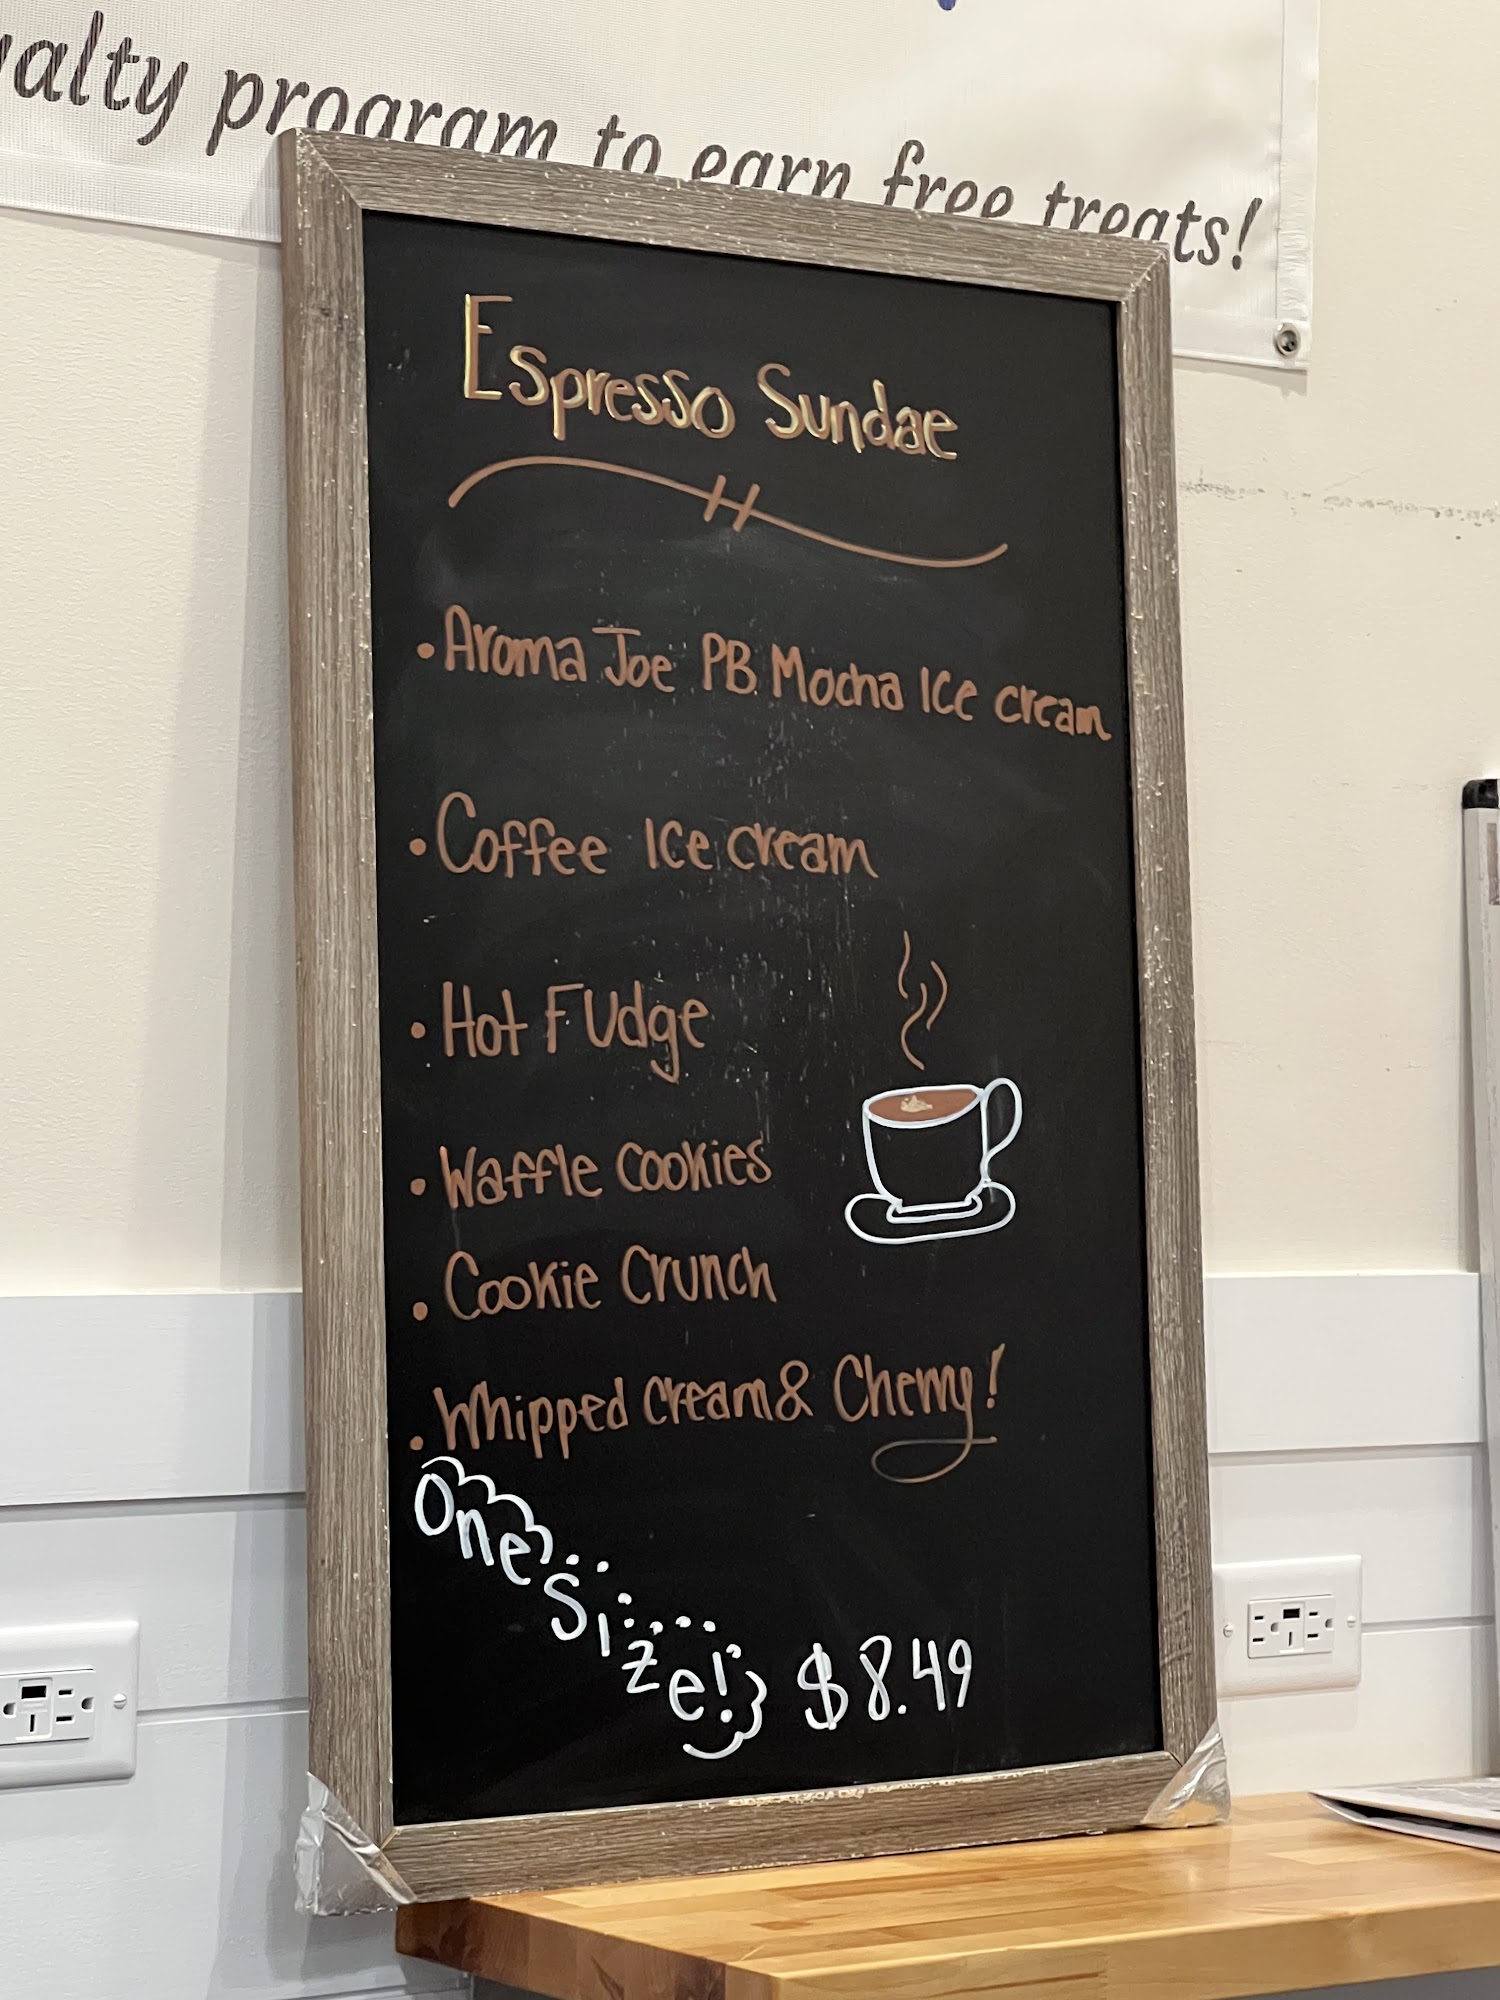 alty program to earn free treats!
Espresso Sundae
• Aroma Joe PB Mocha Ice cream
• Coffee Ice cream
• Hot Fudge
• Waffle Cookies
• Cookie Crunch
• Whipped Cream & Cherry!
One Size! $8.49